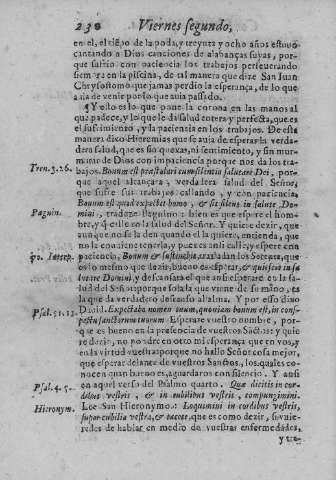 230
Viernes segundo,
en el, el tiẽpo de la poda, y treynta y ocho años estuvo
cantando a Dios canciones de alabanças suyas, por-
que sufrio con paciencia los trabajos perseverando
siempre en la piscina, de tal manera que dize San Juan
Chrysostomo que jamas perdio la esperança, de lo que
avia de venir por lo que avia passado.
Y esto es lo que pone la corona en las manos al
que padece, y lo que le da salud entera y perfecta, que es
el sufrimiento, y la paciencia en los trabajos. De esta
manera dixo Hieremias que se avia de esperar la verda-
dera salud, que es sin quexas, ni sentimiento, y sin mur-
murar de Dios con impaciencia porque nos da los tra-
Tren. 3. 26.
bajos. Bonum est præstolari cum silentio salutare Dei, por-
que aquel alcançara, y verdadera salud del Señor,
que sufre sus trabajos callando, y con paciencia,
Bonum est quod expectet homo, & sit silens in salute Do-
Pagnin.
mini, traduze Pagnino: bien es que espere el hom-
bre, y calle en la salud del Señor. Y quiere dezir, que
aunque no se la den quando el la quiere, entienda, que
no la conviene tenerla, y pues es assi calle, y espere con
70. Interp.
paciencia. Bonum & sustinebit, trasladan los Setenta, que
es lo mesmo que dezir, bueno es esperar, & quiescet in sa-
lutare Domini, y descansará el que assi esperare en la sa-
lud del Señor porque sola la que viene de su mano, es
la que da verdadero descanso al alma. Y por esso dixo
Psal. 51. 11.
David. Expectabo nomen tuum, quoniam bonum est, in cons-
pectu sanctorum tuorum. Esperaré vuestro nombre, por-
que es bueno en la presencia de vuestros Sãctos: y quie-
re dezir, no pondre en otro mi esperança que en vos,
en la virtud vuestra porque no hallo Señor cosa mejor,
que esperar delante de vuestros Sanctos, los quales co-
nocen quan bueno es, aguardaros con silencio. Y assi
Psal. 4. 5.
en aquel verso del Psalmo quarto. Quæ dicitis in cor-
dibus vestris, & in cubilibus vestris, compungimini.
Hieronym.
Lee San Hieronymo: Loquimini in cordibus vestris,
super cubilia vestra, & tacete, que es como dezir, si vuie-
redes de hablar en medio da vuestras enfermedades,